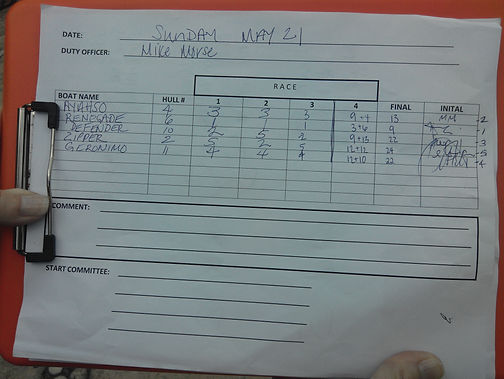 DATE: SUNDAY MAY 21
DUTY OFFICER: Mike Morse
RACE
BOAT NAME HULL # 1 2 3 4 FINAL INITAL
AYUHSO 4 3 3 3 9+4 13 MM 2
RENEGADE 6 1 1 1 3+6 9 1
DEFENDER 10 2 5 2 9+13 22 3
ZIPPER 2 5 2 5 12+12 24 5
GERONIMO 11 4 4 4 12+10 22 4
COMMENT:
START COMMITTEE: